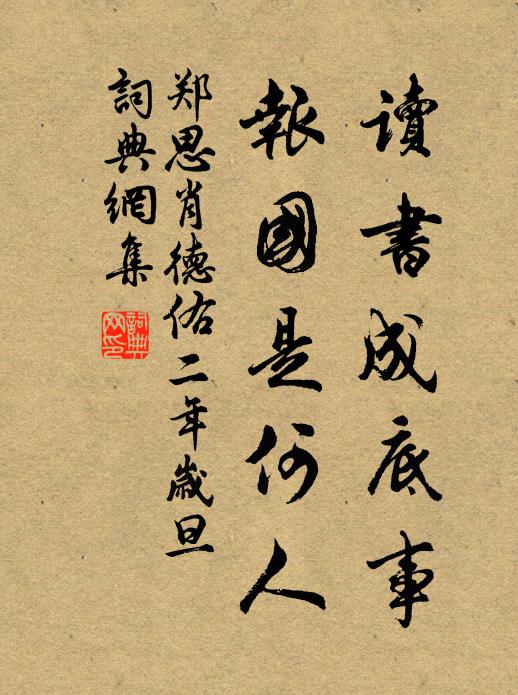 讀書成底事
報國是何人
郑思肖德佑二年歲旦
詞典網集
詞典网印